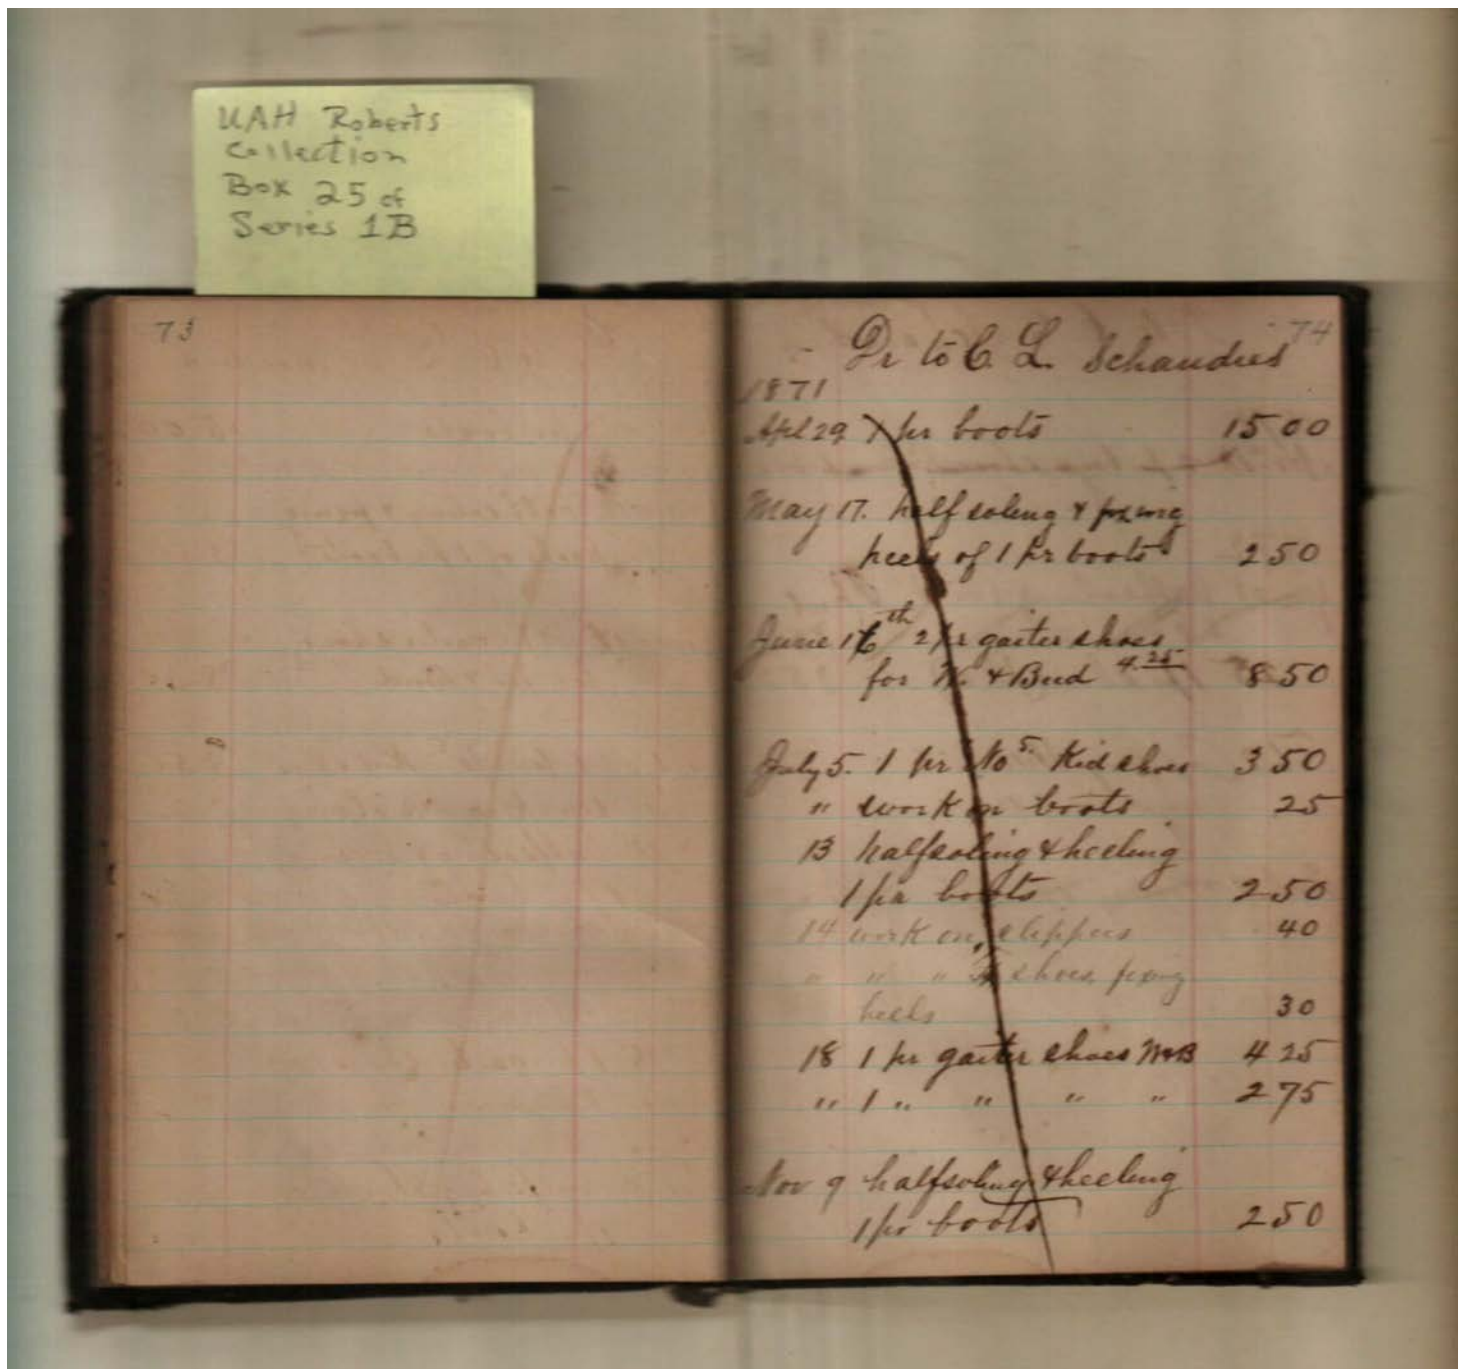 UAH Roberts
Collection
Box 25 of
Series 1B
73
74
Dr to C. L. Schaudies
1871
Apl 29 1 pr boots 15 00
May 17. half soling & fixing
heels of 1 pr boots 2 50
June 16th 2 pr gaiter shoes
for W. & Bud 4.25 8 50
July 5. 1 pr No 5. Kid shoes 3 50
" work on boots 25
13 halfsoling & heeling
1 pr boots 2 50
14 work on slippers 40
" " " shoes, fixing
heels 30
18 1 pr gaiter shoes W&B 4 25
" 1 " " " " 2 75
Nov 9 halfsoling & heeling
1 pr boots 2 50